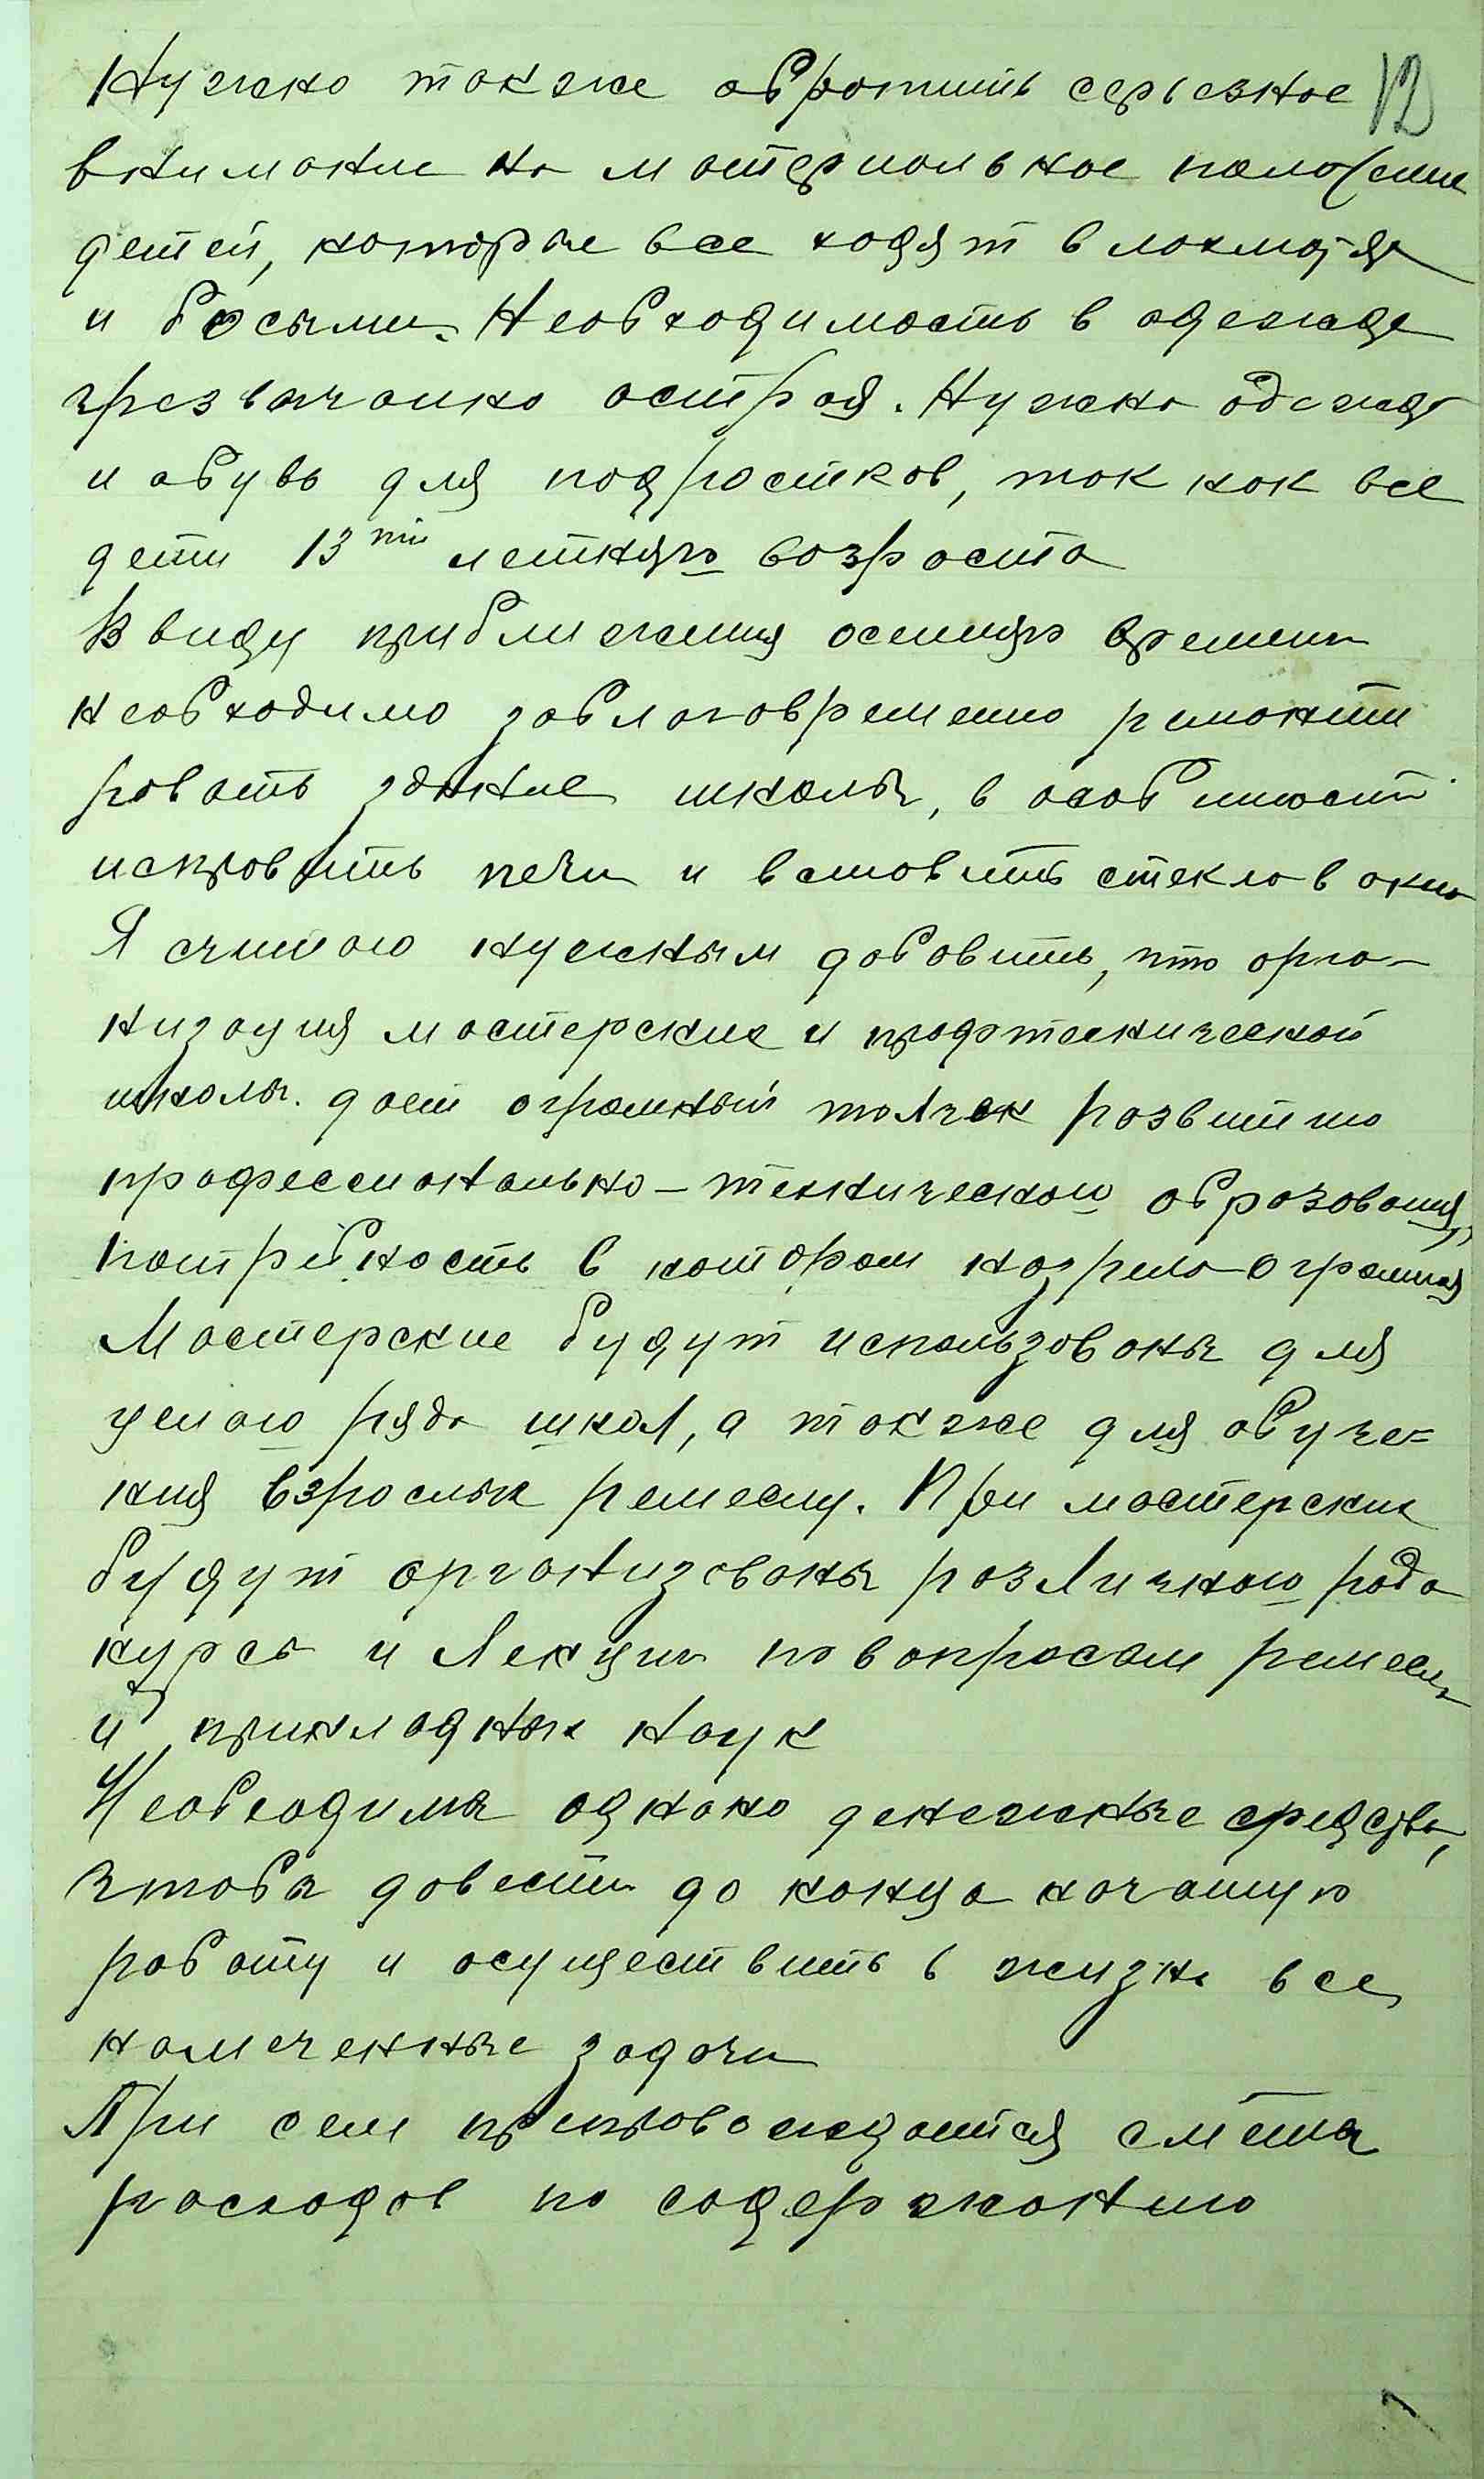 Нужно также обротить серьезное 12
внимание на материальное положение
детей, которые все ходят в лохмотья
и босыми. Необходимость в одежде
чрезвычайно острая. Нужна одежда
и обувь для подростков, так как все
дети 13ти летняго возраста
В виду приближения осенняго времени
необходимо заблаговременно ремонти
ровать здание школы, в особенности
исправить печи и вставить стекла в окна
Я считаю нужным добавить, что орга-
низация мастерских и профтехнической
школы. дает огромный толчек развитию
профессионально-технического образования,
потребность в котором назрела огромная
Мастерские будут использованы для
целого ряда школ, а также для обуче=
ния взрослых ремеслу. При мастерских
будут организованы различного рода
курсы и лекции по вопросам ремесла
и прикладных наук
Необходимы однако денежные средства,
чтобы довести до конца начатую
работу и осуществить в жизнь все
намеченные задачи
При сем препровождаится смета
расходов по содержанию